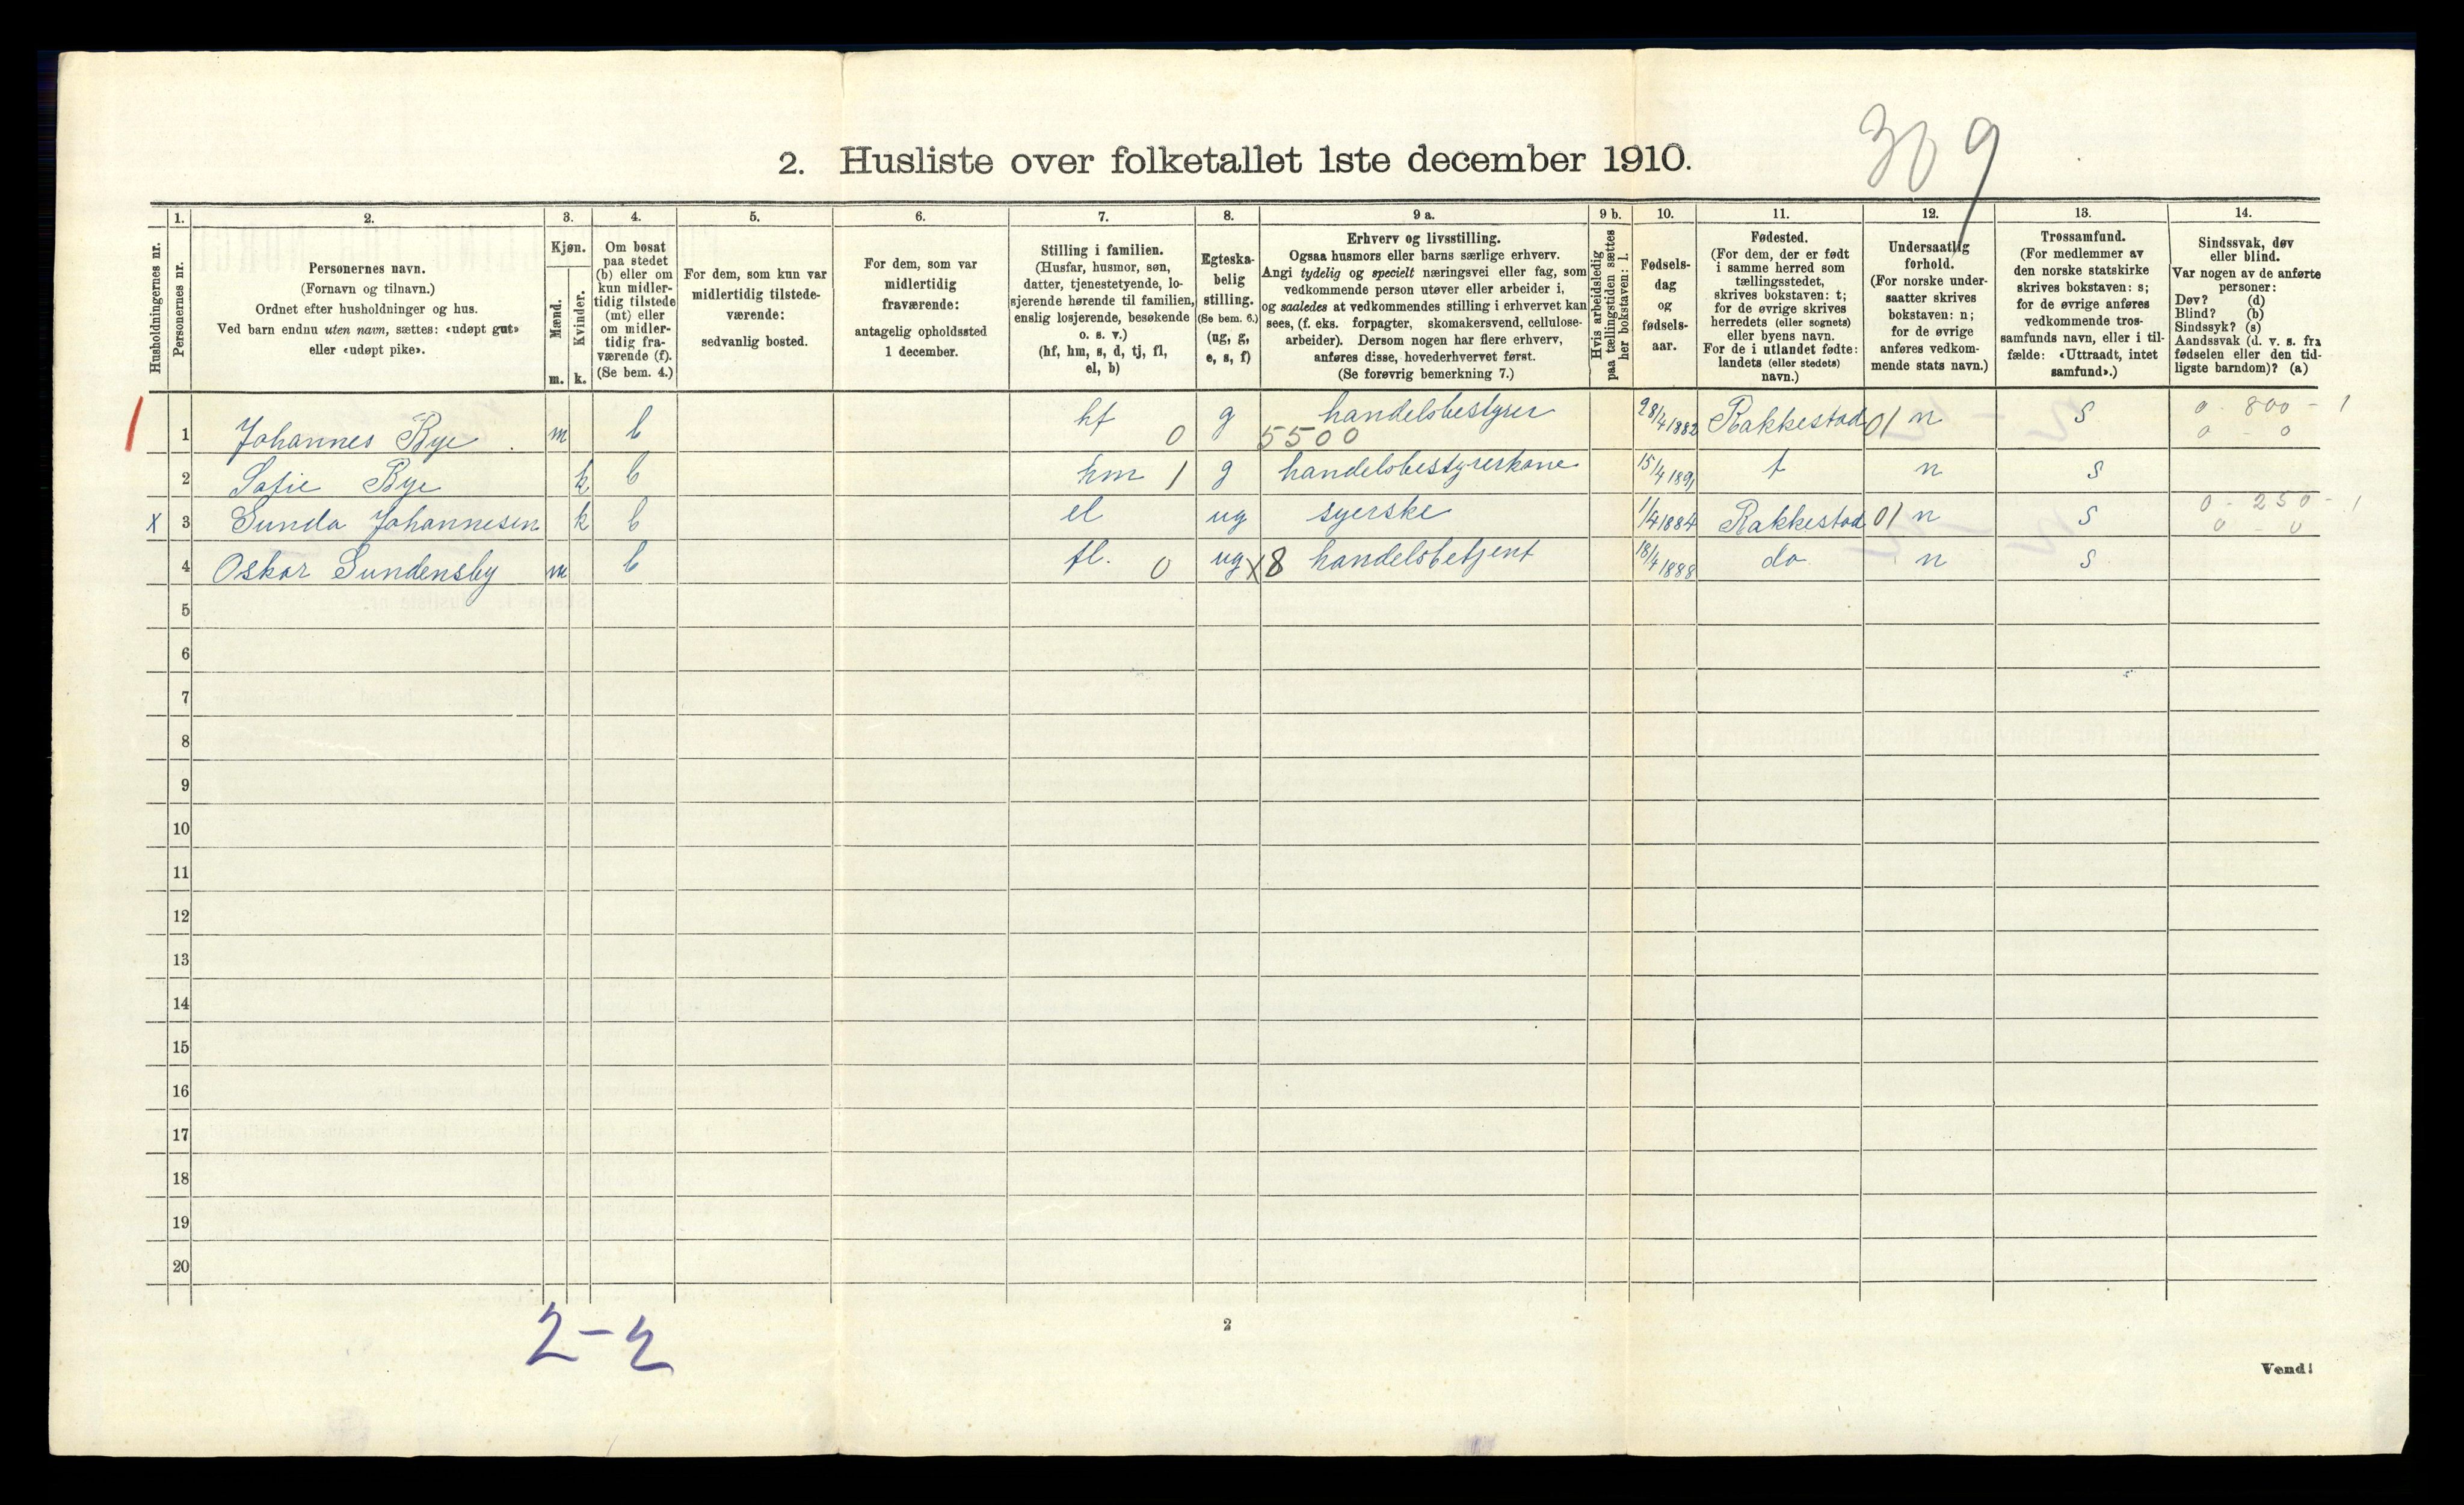 309
2. Husliste over folketallet 1ste december 1910.
Husholdningernes nr.
1.
Personernes nr.
2.
Personernes navn.
(Fornavn og tilnavn.)
Ordnet efter husholdninger og hus.
Ved barn endnu uten navn, sættes: «udøpt gut»
eller «udøpt pike».
3.
Kjøn.
Mænd.
Kvinder.
m. k.
4.
Om bosat
paa stedet
(b) eller om
kun midler-
tidig tilstede
(mt) eller
om midler-
tidig fra-
værende (f).
(Se bem. 4.)
5.
For dem, som kun var
midlertidig tilstede-
værende:
sedvanlig bosted.
6.
For dem, som var
midlertidig
fraværende:
antagelig opholdssted
1 december.
7.
Stilling i familien.
(Husfar, husmor, søn,
datter, tjenestetyende, lo-
sjerende hørende til familien,
enslig losjerende, besøkende
o. s. v.)
(hf, hm, s, d, tj, fl,
el, b)
8.
Egteska-
belig
stilling.
(Se bem. 6.)
(ug, g,
e, s, f)
9 a.
Erhverv og livsstilling.
Ogsaa husmors eller barns særlige erhverv.
Angi tydelig og specielt næringsvei eller fag, som
vedkommende person utøver eller arbeider i,
og saaledes at vedkommendes stilling i erhvervet kan
sees, (f. eks. forpagter, skomakersvend, cellulose-
arbeider). Dersom nogen har flere erhverv,
anføres disse, hovederhvervet først.
(Se forøvrig bemerkning 7.)
9 b.
Hvis arbeidsledig
paa tællingstiden sættes
her bokstaven: l.
10.
Fødsels-
dag
og
fødsels-
aar.
11.
Fødested.
(For dem, der er født
i samme herred som
tællingsstedet,
skrives bokstaven: t;
for de øvrige skrives
herredets (eller sognets)
eller byens navn.
For de i utlandet fødte:
landets (eller stedets)
navn.)
12.
Undersaatlig
forhold.
(For norske under-
saatter skrives
bokstaven: n;
for de øvrige
anføres vedkom-
mende stats navn.)
13.
Trossamfund.
(For medlemmer av
den norske statskirke
skrives bokstaven: s;
for de øvrige anføres
vedkommende tros-
samfunds navn, eller i til-
fælde: «Uttraadt, intet
samfund».)
14.
Sindssvak, døv
eller blind.
Var nogen av de anførte
personer:
Døv? (d)
Blind? (b)
Sindssyk? (s)
Aandssvak (d. v. s. fra
fødselen eller den tid-
ligste barndom)? (a)
1 1 Johannes Bye m b hf 0 g handelsbestyrer 5500 28/4 1882 Rakkestad 01 n s 0 - 800 - 1
0 - 0
2 Sofie Bye k b hm 1 g handelsbestyrerkone 15/4 1891 t n s
x 3 Gunda Johannesen k b el ug syerske 1/4 1884 Rakkestad 01 n s 0 - 250 - 1
0 - 0
4 Oskar Gundensby m b fl. 0 ug x8 handelsbetjent 18/4 1888 do n s
5
6
7
8
9
10
11
12
13
14
15
16
17
18
19
20
2-2
2
Vend!